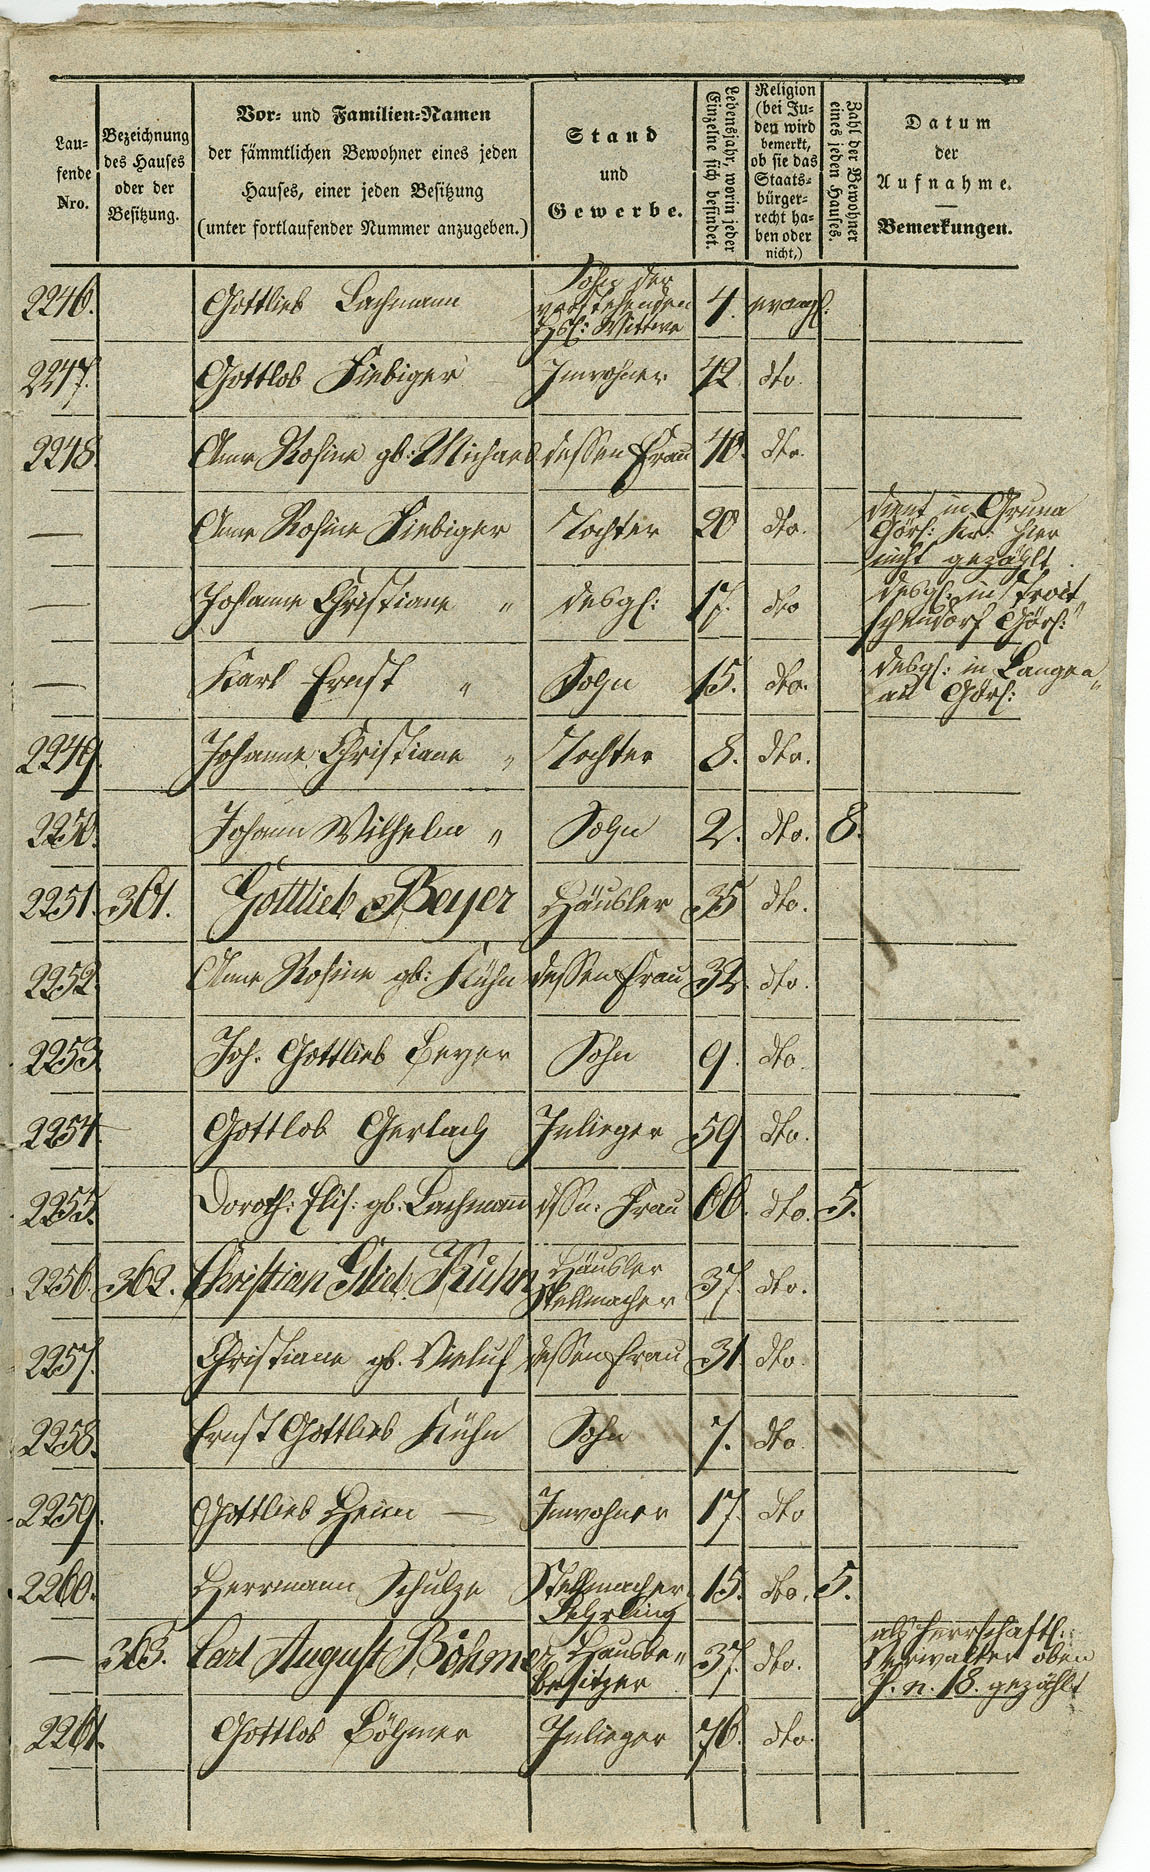 Lau-
fende
Nro.
Bezeichnung
des Hauses
oder der
Besitzung.
Vor- und Familien-Namen
der sämmtlichen Bewohner eines jeden
Hauses, einer jeden Besitzung
(unter fortlaufender Nummer anzugeben.)
Stand
und
Gewerbe.
Lebensjahr, worin jeder
Einzelne sich befindet.
Religion
(bei Ju-
den wird
bemerkt,
ob sie das
Staats-
bürger-
recht ha-
ben oder
nicht,)
Zahl der Bewohner
eines jeden Hauses.
Datum
der
Aufnahme.
Bemerkungen.
2246. Gottlieb Lachmann Sohn der vorstehenden Hsl: Wittwe 4. evangl.
2247. Gottlob Fiebiger Inwohner 42 dto.
2248. Anne Rosine gb: Michael dessen Frau 40. dto.
— Anne Rosine Fiebiger Tochter 20 dto. dient in Gruna Görl: Kr: hier nicht gezählt.
— Johanne Christiane " desgl: 17. dto desgl: in Troit schendorf Görl:
— Karl Ernst " Sohn 15. dto. desgl: in Langen" au Görl:
2249. Johanne Christiane " Tochter 8. dto.
2250. Johann Wilhelm " Sohn 2. dto. 8.
2251. 361. Gottlieb Beyer Häusler 35 dto.
2252. Anne Rosine gb: Kühn dessen Frau 32. dto.
2253. Joh. Gottlieb Beyer Sohn 9. dto.
2254. Gottlob Gerlach Inlieger 59 dto.
2255. Doroth: Elis: gb. Lachmann dssn: Frau 66. dto. 5.
2256. 362. Christian Glieb. Kühn Häusler Stellmacher 37. dto.
2257. Christiane gb. Vieluf dessen Frau 31 dto.
2258. Ernst Gottlieb Kühn Sohn 7. dto.
2259. Gottlieb — Inwohner 17. dto
2260. Herrmann Schulze Stellmacher- Lehrling 15. dto. 5.
— 363. Carl August Böhmer Hausbe" besitzer 37. dto. als herrschaftl: Verwalter oben P. n. 18. gezählt
2261. Gottlob Böhmer Inlieger 76. dto.